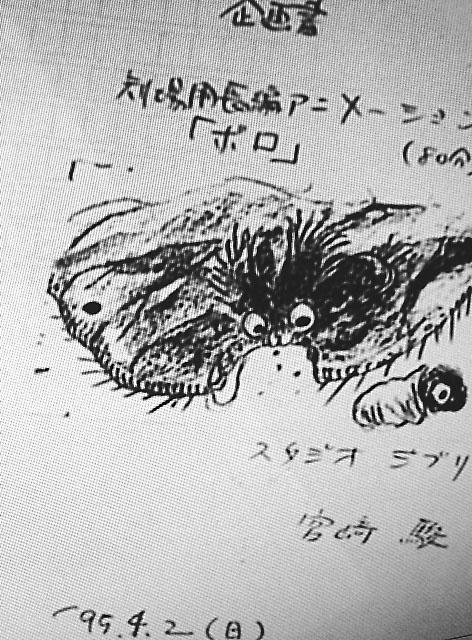 企画書
劇場用長編アニメーション
「ボロ」
(80分
スタジオ ジブリ
宮崎 駿
'95.4.2(日)